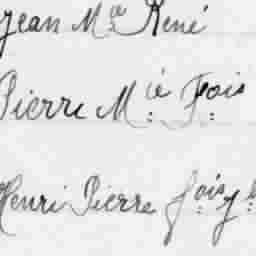 Jean Mie René
Pierre M.ie F.ois
Henri Pierre f.ois J.h